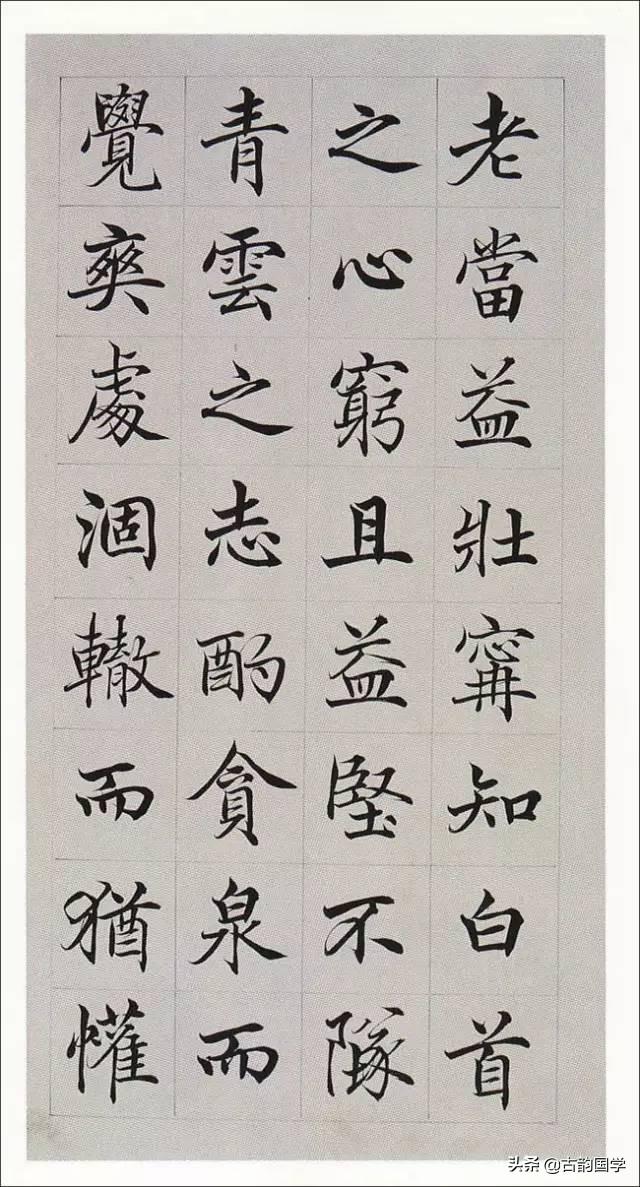 老當益壯寧知白首
之心窮且益堅不隊
青雲之志酌貪泉而
覺爽處涸轍而猶懽
头条@古韵国学